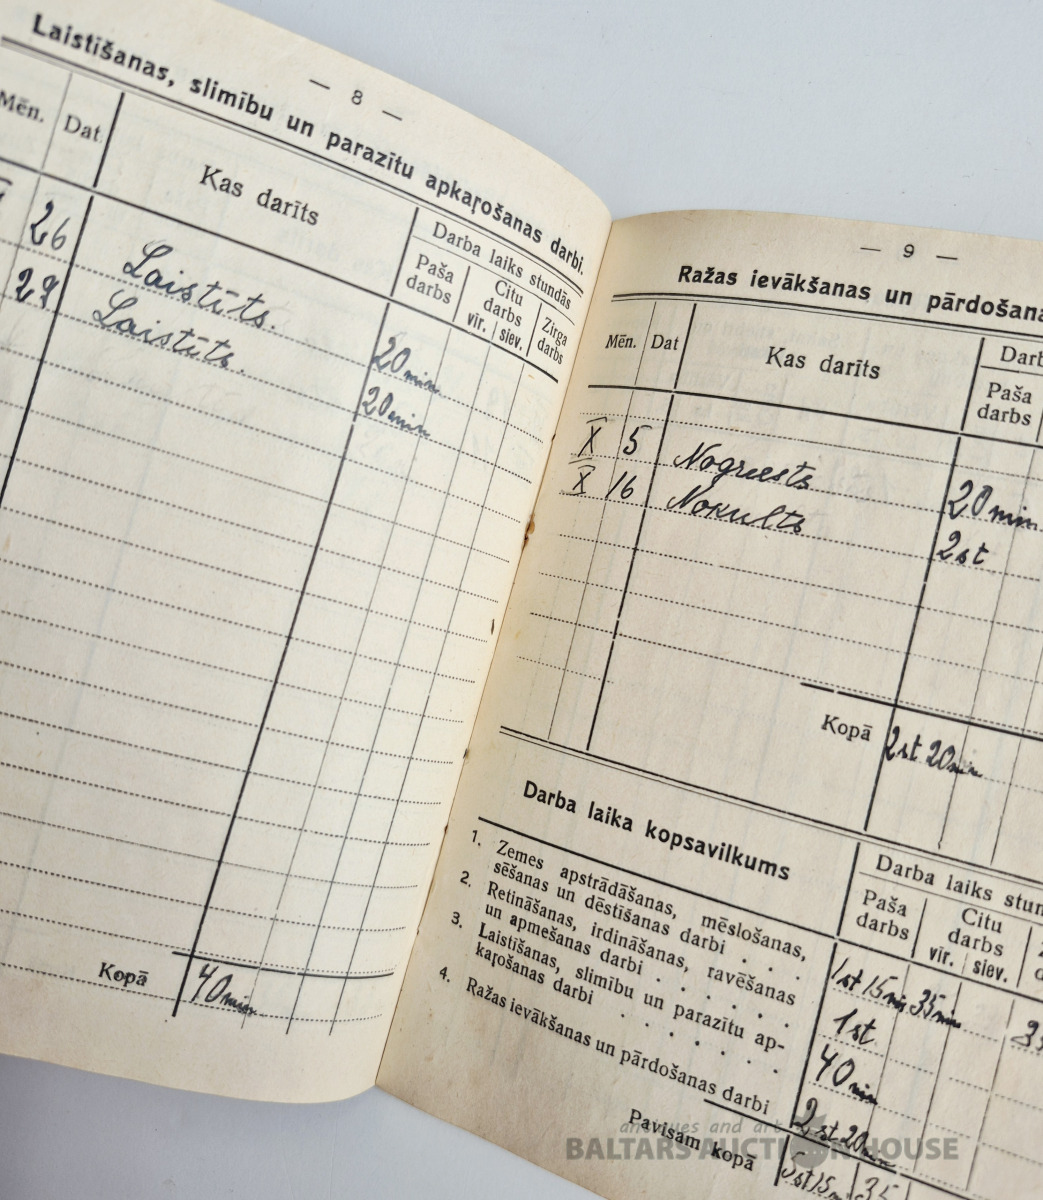 — 8 —
Laistišanas, slimību un parazītu apkaŗošanas darbi.
Mēn. Dat. Kas darīts Darba laiks stundās
Paša darbs Citu darbs vīr. siev. Zirga darbs
26 Laistīts. 20 min
29 Laistīts. 20 min
Kopā 40 min
— 9 —
Ražas ievākšanas un pārdošana
Mēn. Dat Kas darīts Darb
Paša darbs
X 5 Nogriests 20 min
X 16 Nokults 2 st
Kopā 2 st 20 min
Darba laika kopsavilkums
Darba laiks stun
Paša darbs Citu darbs vīr. siev.
1. Zemes apstrādāšanas, mēslošanas,
sēšanas un dēstīšanas darbi . . . 1 st 15 min 35 min
2. Retināšanas, irdināšanas, ravēšanas
un apmešanas darbi . . . . . 1 st
3. Laistīšanas, slimību un parazītu ap-
kaŗošanas darbi . . . . . 40 min
4. Ražas ievākšanas un pārdošanas darbi 2 st 20 min
Pavisam kopā 5 st 15 m 35
antiques and art
BALTARS AUCTION HOUSE